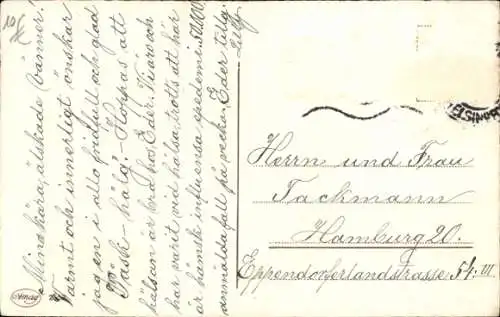 Mina kära, älskade vänner!
Varmt och innerligt önskar
jag en i allo fridfull och glad
Påsk-hälg. - Hoppas att
hälsan är bra hos Eder. Vi äro och
har varit vid hälsa, trots att här
är hämsk influensa epedemi, 50,000
anmälda fall på vecka. Eder tillg.
Elly
Herrn und Frau
Tackmann
Hamburg 20.
Eppendorferlandstrasse 54. III
HELSINGF
Amag